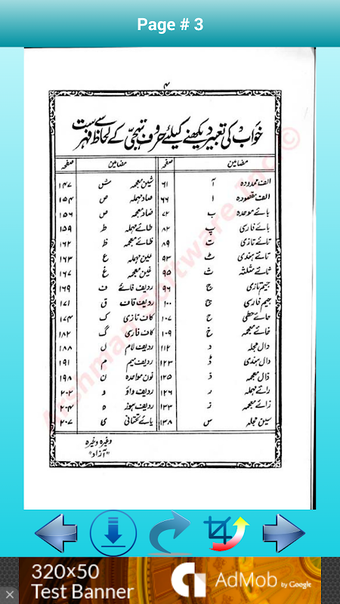 Page # 3
۴
خواب کی تعبیر دیکھنے کیلئے حروف تہجی کے لحاظ سے فہرست
مضامین صفحہ مضامین صفحہ
الف ممدودہ آ ۶۱ شین معجمہ ش ۱۴۷
الف مقصورہ ا ۶۶ صاد مہملہ ص ۱۵۴
بائے موحدہ ب ۷۲ ضاد معجمہ ض ۱۵۶
بائے فارسی پ ۸۲ طائے مہملہ ط ۱۵۹
تائے تازی ت ۸۹ ظائے معجمہ ظ ۱۶۲
تائے ہندی ٹ عین مہملہ ع ۱۶۳
ثائے مثلثہ ث ۹۵ غین معجمہ غ ۱۶۷
جیم تازی ج ۹۶ ردیف فائے ف ۱۶۹
جیم فارسی چ ۱۰۰ ردیف قاف ق ۱۷۱
حائے حطی ح ۱۰۷ کاف تازی ک ۱۷۴
خائے معجمہ خ ۱۰۹ کاف فارسی گ ۱۸۲
دال مہملہ د ۱۱۲ ردیف لام ل ۱۸۸
دال ہندی ڈ ۱۲۳ ردیف میم م ۱۹۱
ذال معجمہ ذ ۱۲۵ نون مواحدہ ن ۱۹۸
رائے مہملہ ر ۱۲۶ ردیف واؤ و ۲۰۲
زائے معجمہ ز ۱۳۳ ردیف ہوز ہ ۲۰۴
سین مہملہ س ۱۳۸ یائے تحتانی ی ۲۰۷
وغیرہ وغیرہ
"آزاد"
320x50
Test Banner
AdMob by Google